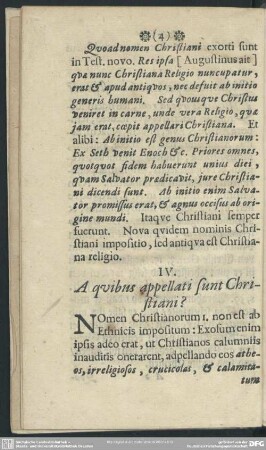 ❁(4)❁
Quoad nomen Christiani exorti sunt
in Test. novo. Res ipsa [Augustinus ait]
qva nunc Christiana Religio nuncupatur,
erat & apud antiqvos, nec defuit ab initio
generis humani. Sed qvousqve Christus
veniret in carne, unde vera Religio, qvæ
jam erat, cœpit appellari Christiana. Et
alibi: Ab initio est genus Christianorum:
Ex Seth venit Enoch &c. Priores omnes,
qvotqvot fidem habuerunt unius diei,
qvam Salvator predicavit, jure Christia-
ni dicendi sunt. Ab initio enim Salva-
tor promissus erat, & agnus occisus ab ori-
gine mundi. Itaqve Christiani semper
fuerunt. Nova qvidem nominis Chri-
stiani impositio, sed antiqva est Christia-
na religio.
IV.
A qvibus appellati sunt Chri-
stiani?
NOmen Christianorum 1. non est ab
Ethnicis impositum: Exosum enim
ipsis adeo erat, ut Christianos calumniis
inauditis onerarent, adpellando eos athe-
os, irreligiosos, crucicolas, & calamita-
tum